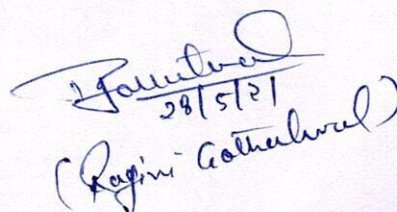 28/5/21
(Ragini Gothelwal)